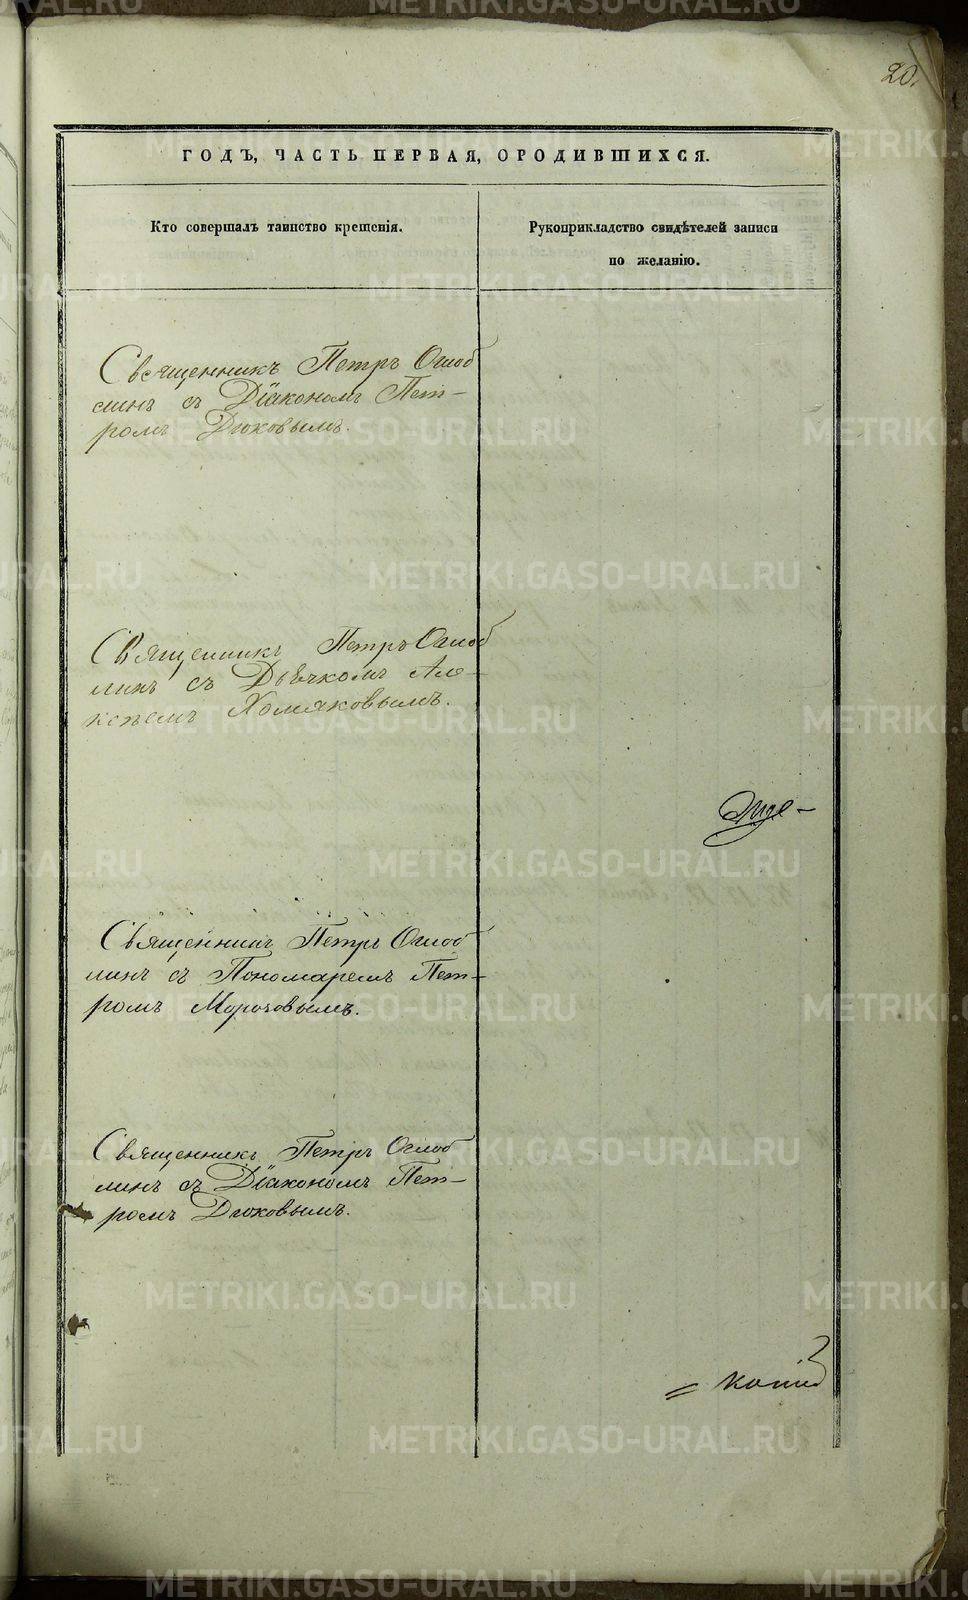 20.
ГОДЪ, ЧАСТЬ ПЕРВАЯ, ОРОДИВШИХСЯ.
Кто совершалъ таинство крещенія.
Рукоприкладство свидѣтелей записи
по желанію.
Священникъ Петръ Оглоб
линъ съ Діакономъ Пет-
ромъ Дюковымъ.
Священникъ Петръ Оглоб
линъ съ Дьячкомъ Але-
ксѣемъ Холмяковымъ.
Священникъ Петръ Оглоб
линъ съ Пономаремъ Пет-
ромъ
Священникъ Петръ Оглоб
линъ съ Діакономъ Пет-
ромъ Дюковымъ.
METRIKI.GASO-URAL.RU